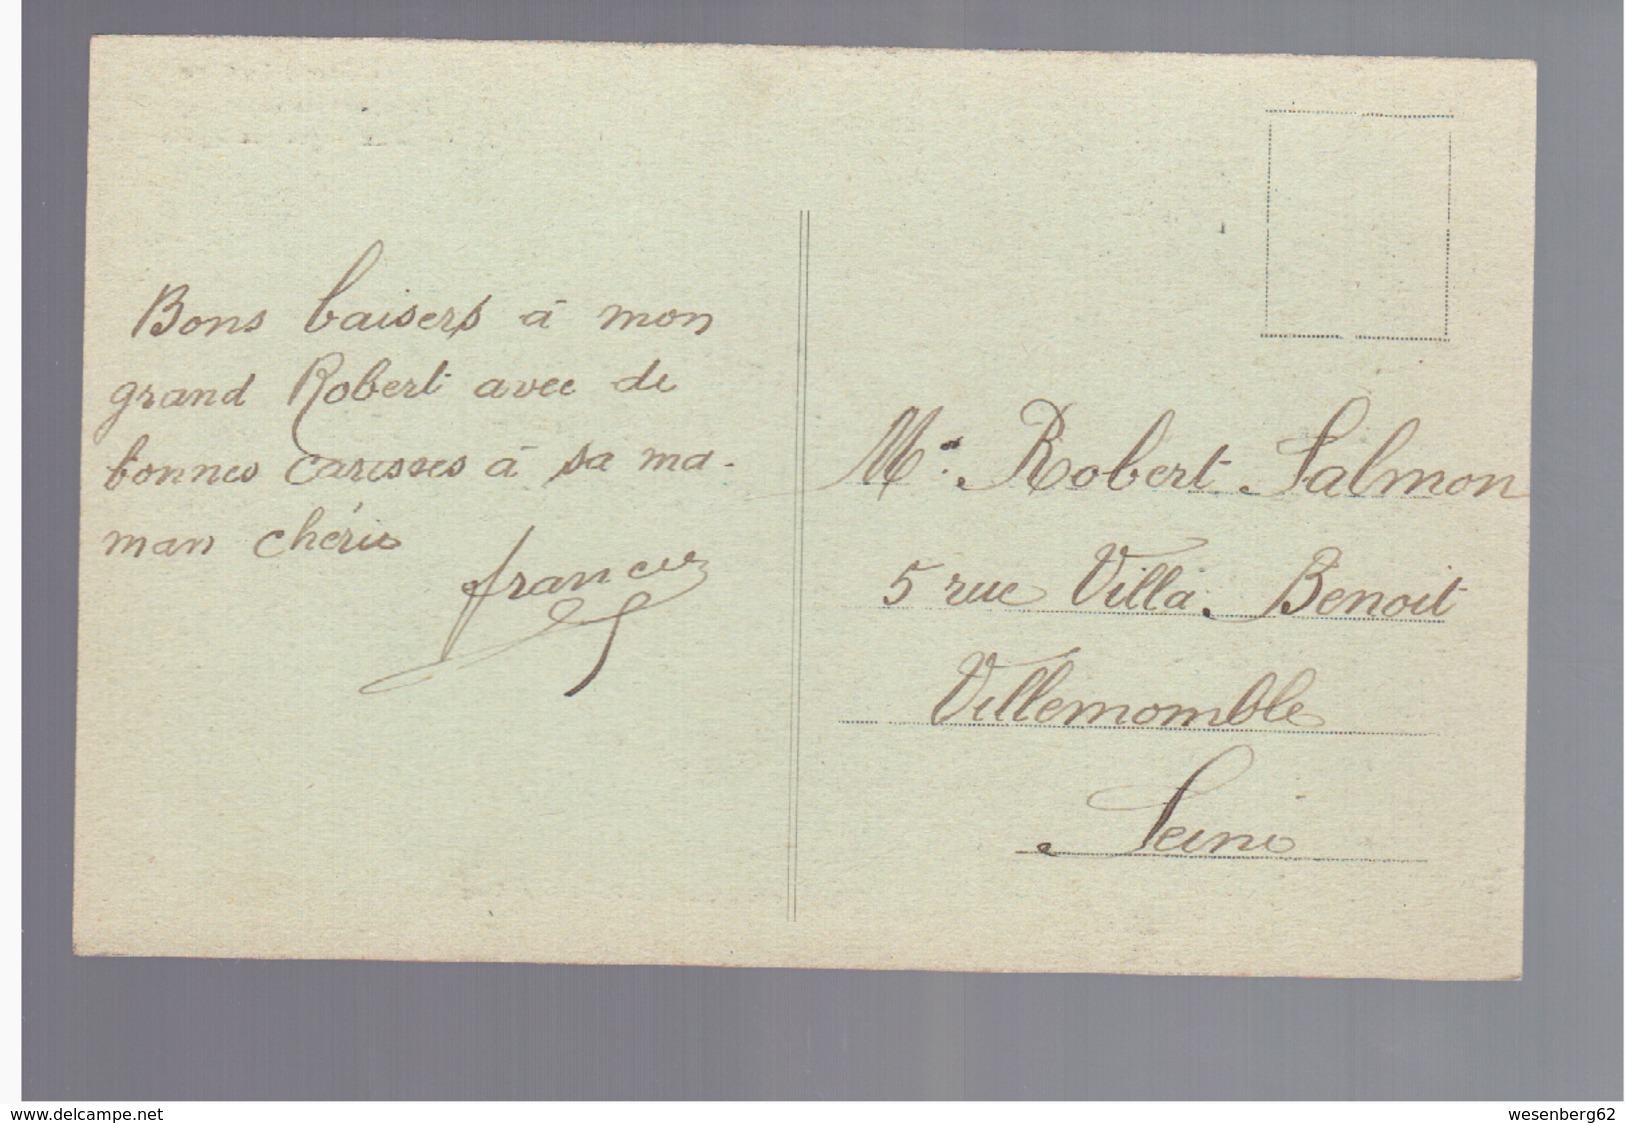 Bons baisers à mon
grand Robert avec de
bonnes caresses à sa ma-
man chérie
M. Robert Salmon
5 rue Villa Benoit
Villemomble
Seine
www.delcampe.net
wesenberg62